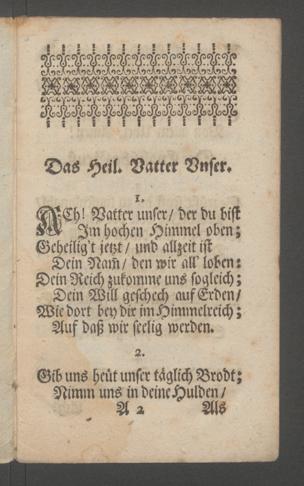 Das Heil. Vatter Vnser.
1.
ACh! Vatter unser / der du bist
Im hochen Himmel oben;
Geheilig't jetzt / und allzeit ist
Dein Nam̃ / den wir all' loben:
Dein Reich zukomme uns sogleich;
Dein Will geschech auf Erden /
Wie dort bey dir im Himmelreich;
Auf daß wir seelig werden.
2.
Gib uns heüt unser täglich Brodt;
Nimm uns in deine Hulden /
A 2 Als